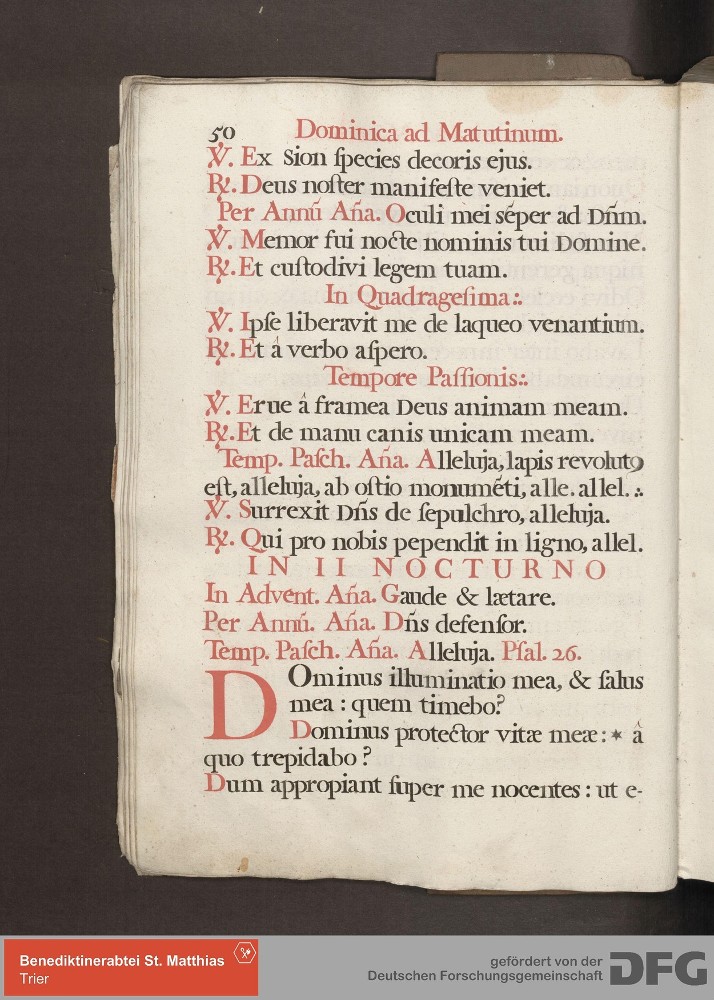 50 Dominica ad Matutinum.
℣. Ex Sion ſpecies decoris ejus.
℟. Deus noſter manifeſte veniet.
Per Annũ Añа. Oculi mei sẽper ad Dñm.
℣. Memor fui nocte nominis tui Domine.
℟. Et cuſtodivi legem tuam.
In Quadrageſima∴
℣. Ipſe liberavit me de laqueo venantium.
℟. Et â verbo aſpero.
Tempore Paſſionis∴
℣. Erue â framea Deus animam meam.
℟. Et de manu canis unicam meam.
Temp. Paſch. Aña. Alleluja, lapis revoluto
eſt, alleluja, ab oſtio monumẽti, alle. allel. ∴
℣. Surrexit Dñs de ſepulchro, alleluja.
℟. Qui pro nobis pependit in ligno, allel.
IN II NOCTURNO
In Advent. Aña. Gaude & lætare.
Per Annũ. Aña. Dñs defenſor.
Temp. Paſch. Aña. Alleluja. Pſal. 26.
DOminus illuminatio mea, & ſalus
mea : quem timebo?
Dominus protector vitæ meæ : * â
quo trepidabo ?
Dum appropiant ſuper me nocentes : ut e-
Benediktinerabtei St. Matthias
Trier
gefördert von der
Deutschen Forschungsgemeinschaft
DFG